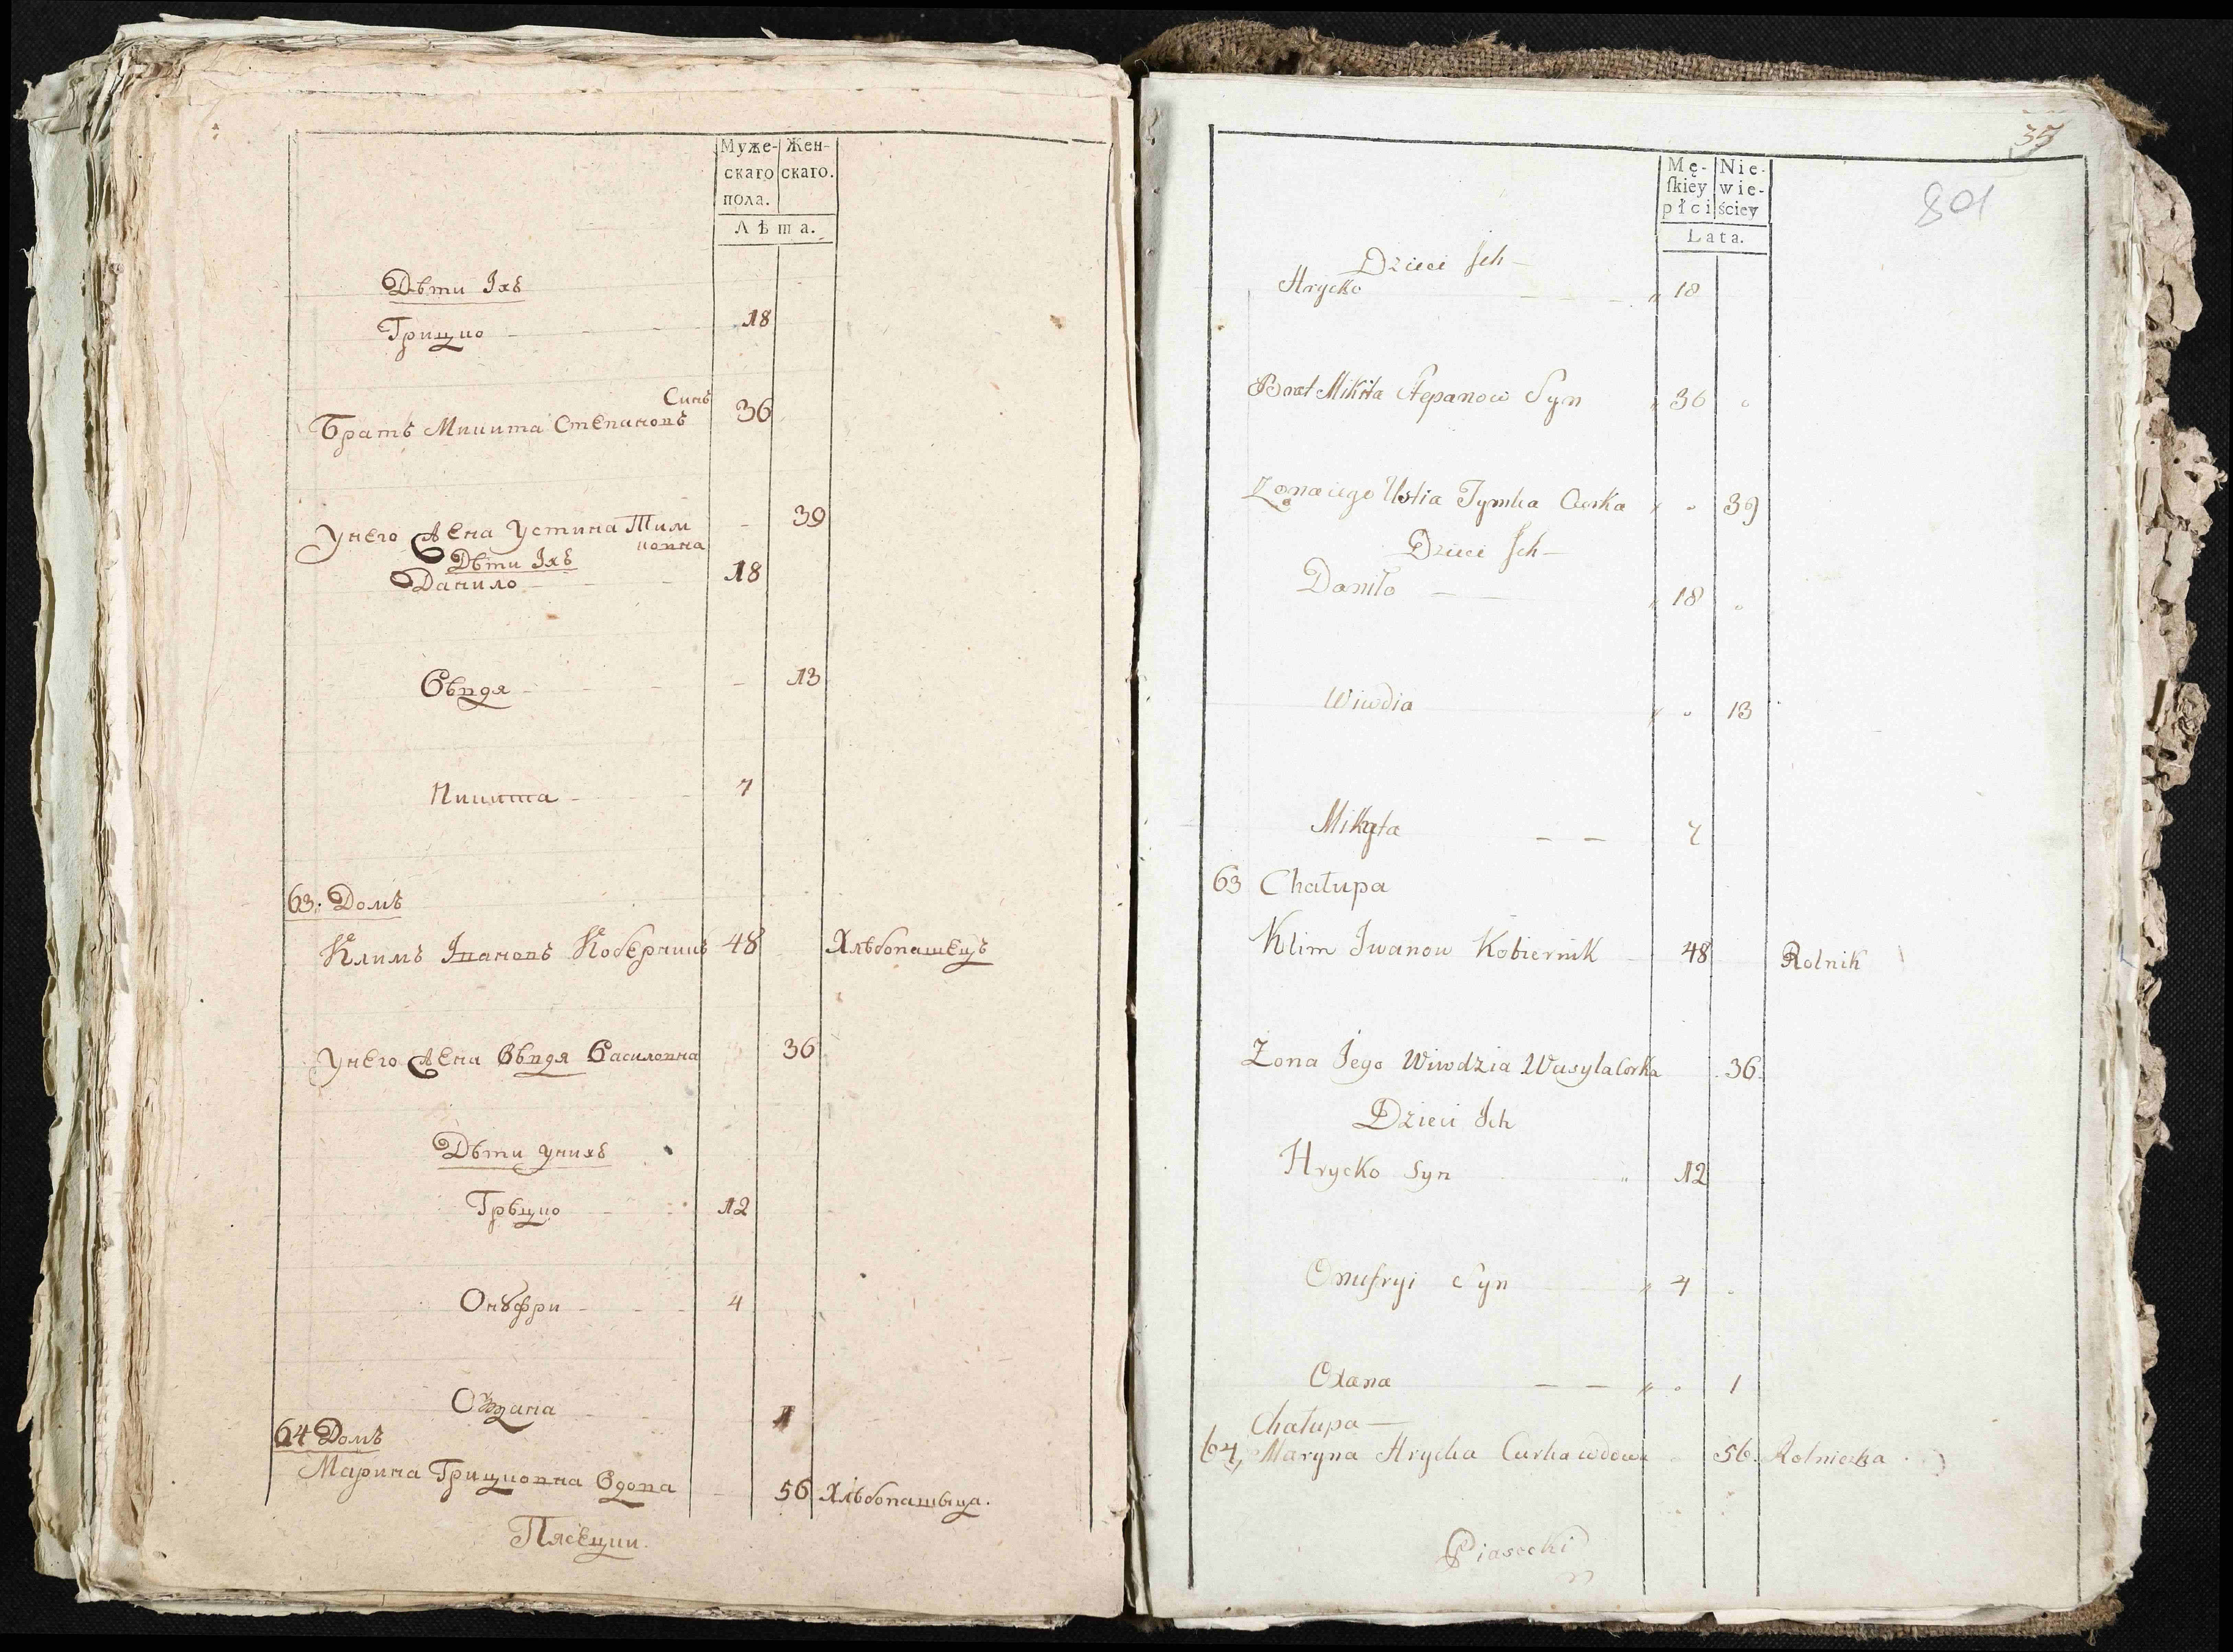 Муже- Жен-
скаго скаго.
пола.
Лѣта.
Дѣти Іхъ
Грицко 18
Синъ
Братъ Микита Степановъ 36
Унего жена Устина Тим 39
ковна
Дѣти Іхъ
Данило 18
Овѣдя 13
Никита 7
63. Домъ
Климъ Івановъ Коберникъ 48 Хлѣбопашецъ
Унего жена Ввѣдя Василовна 36
Дѣти унихъ
Грѣцко 12
Онуфри 4
Оѯана 1
64 Домъ
Марина Грицковна Вдова 56 Хлѣбопашыца.
Пясецки.
35
801
Mę- Nie-
ſkiey wie-
płci ściey
Lata.
Dzieci Ich
Hrycko 18
Brat Mikita Stepanow Syn 36
Zona iego Ustia Tymka Curka 39
Dzieci Ich
Daniło 18
Wiwdia 13
Mikyta 7
63 Chałupa
Klim Iwanow Kobiernik 48 Rolnik
Zona Jego Wiwdzia Wasyla Corka 36
Dzieci Ich
Hrycko Syn 12
Onufryi Syn 4
Oxana 1
Chałupa
64, Maryna Hrycka Curka wdowa 56. Rolniczka
Piasecki